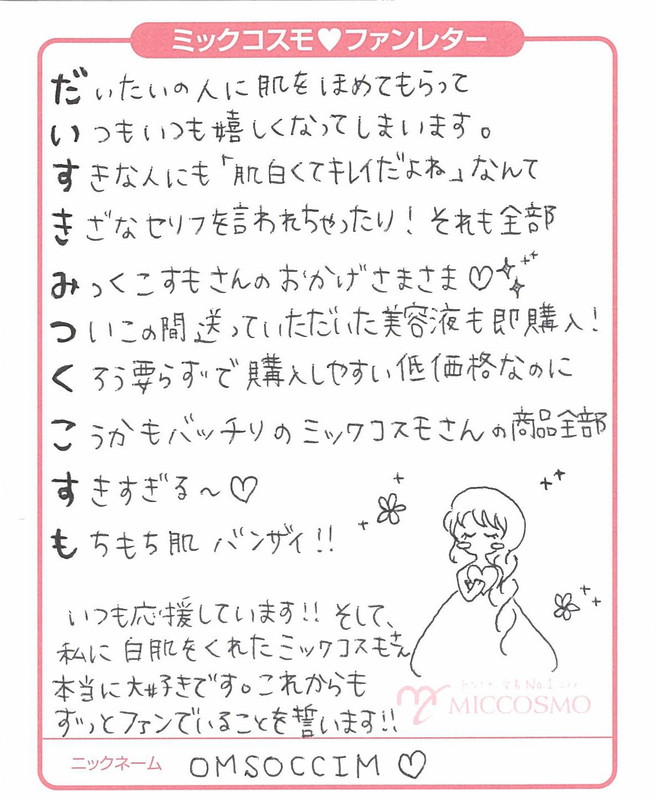 ミックコスモ♥ファンレター
だいたいの人に肌をほめてもらって
いつもいつも嬉しくなってしまいます。
すきな人にも「肌白くてキレイだよね」なんて
きざなセリフを言われちゃったり！それも全部
みっくこすもさんのおかげさまさま♡
ついこの間送っていただいた美容液も即購入！
くろう要らずで購入しやすい低価格なのに
こうかもバッチリのミックコスモさんの商品全部
すきすぎる〜♡
もちもち肌バンザイ!!
いつも応援しています!!そして、
私に白肌をくれたミックコスモさん
本当に大好きです。これからも
ずっとファンでいることを誓います!!
MICCOSMO
ニックネーム OMSOCCIM♡